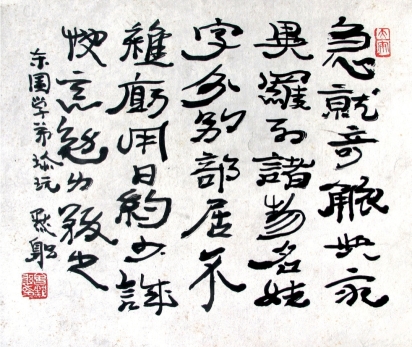 急就奇觚与衆
異羅列諸物名姓
字分別部居不
雜廁用日約少誠
快意勉力務之
东园学弟珍玩